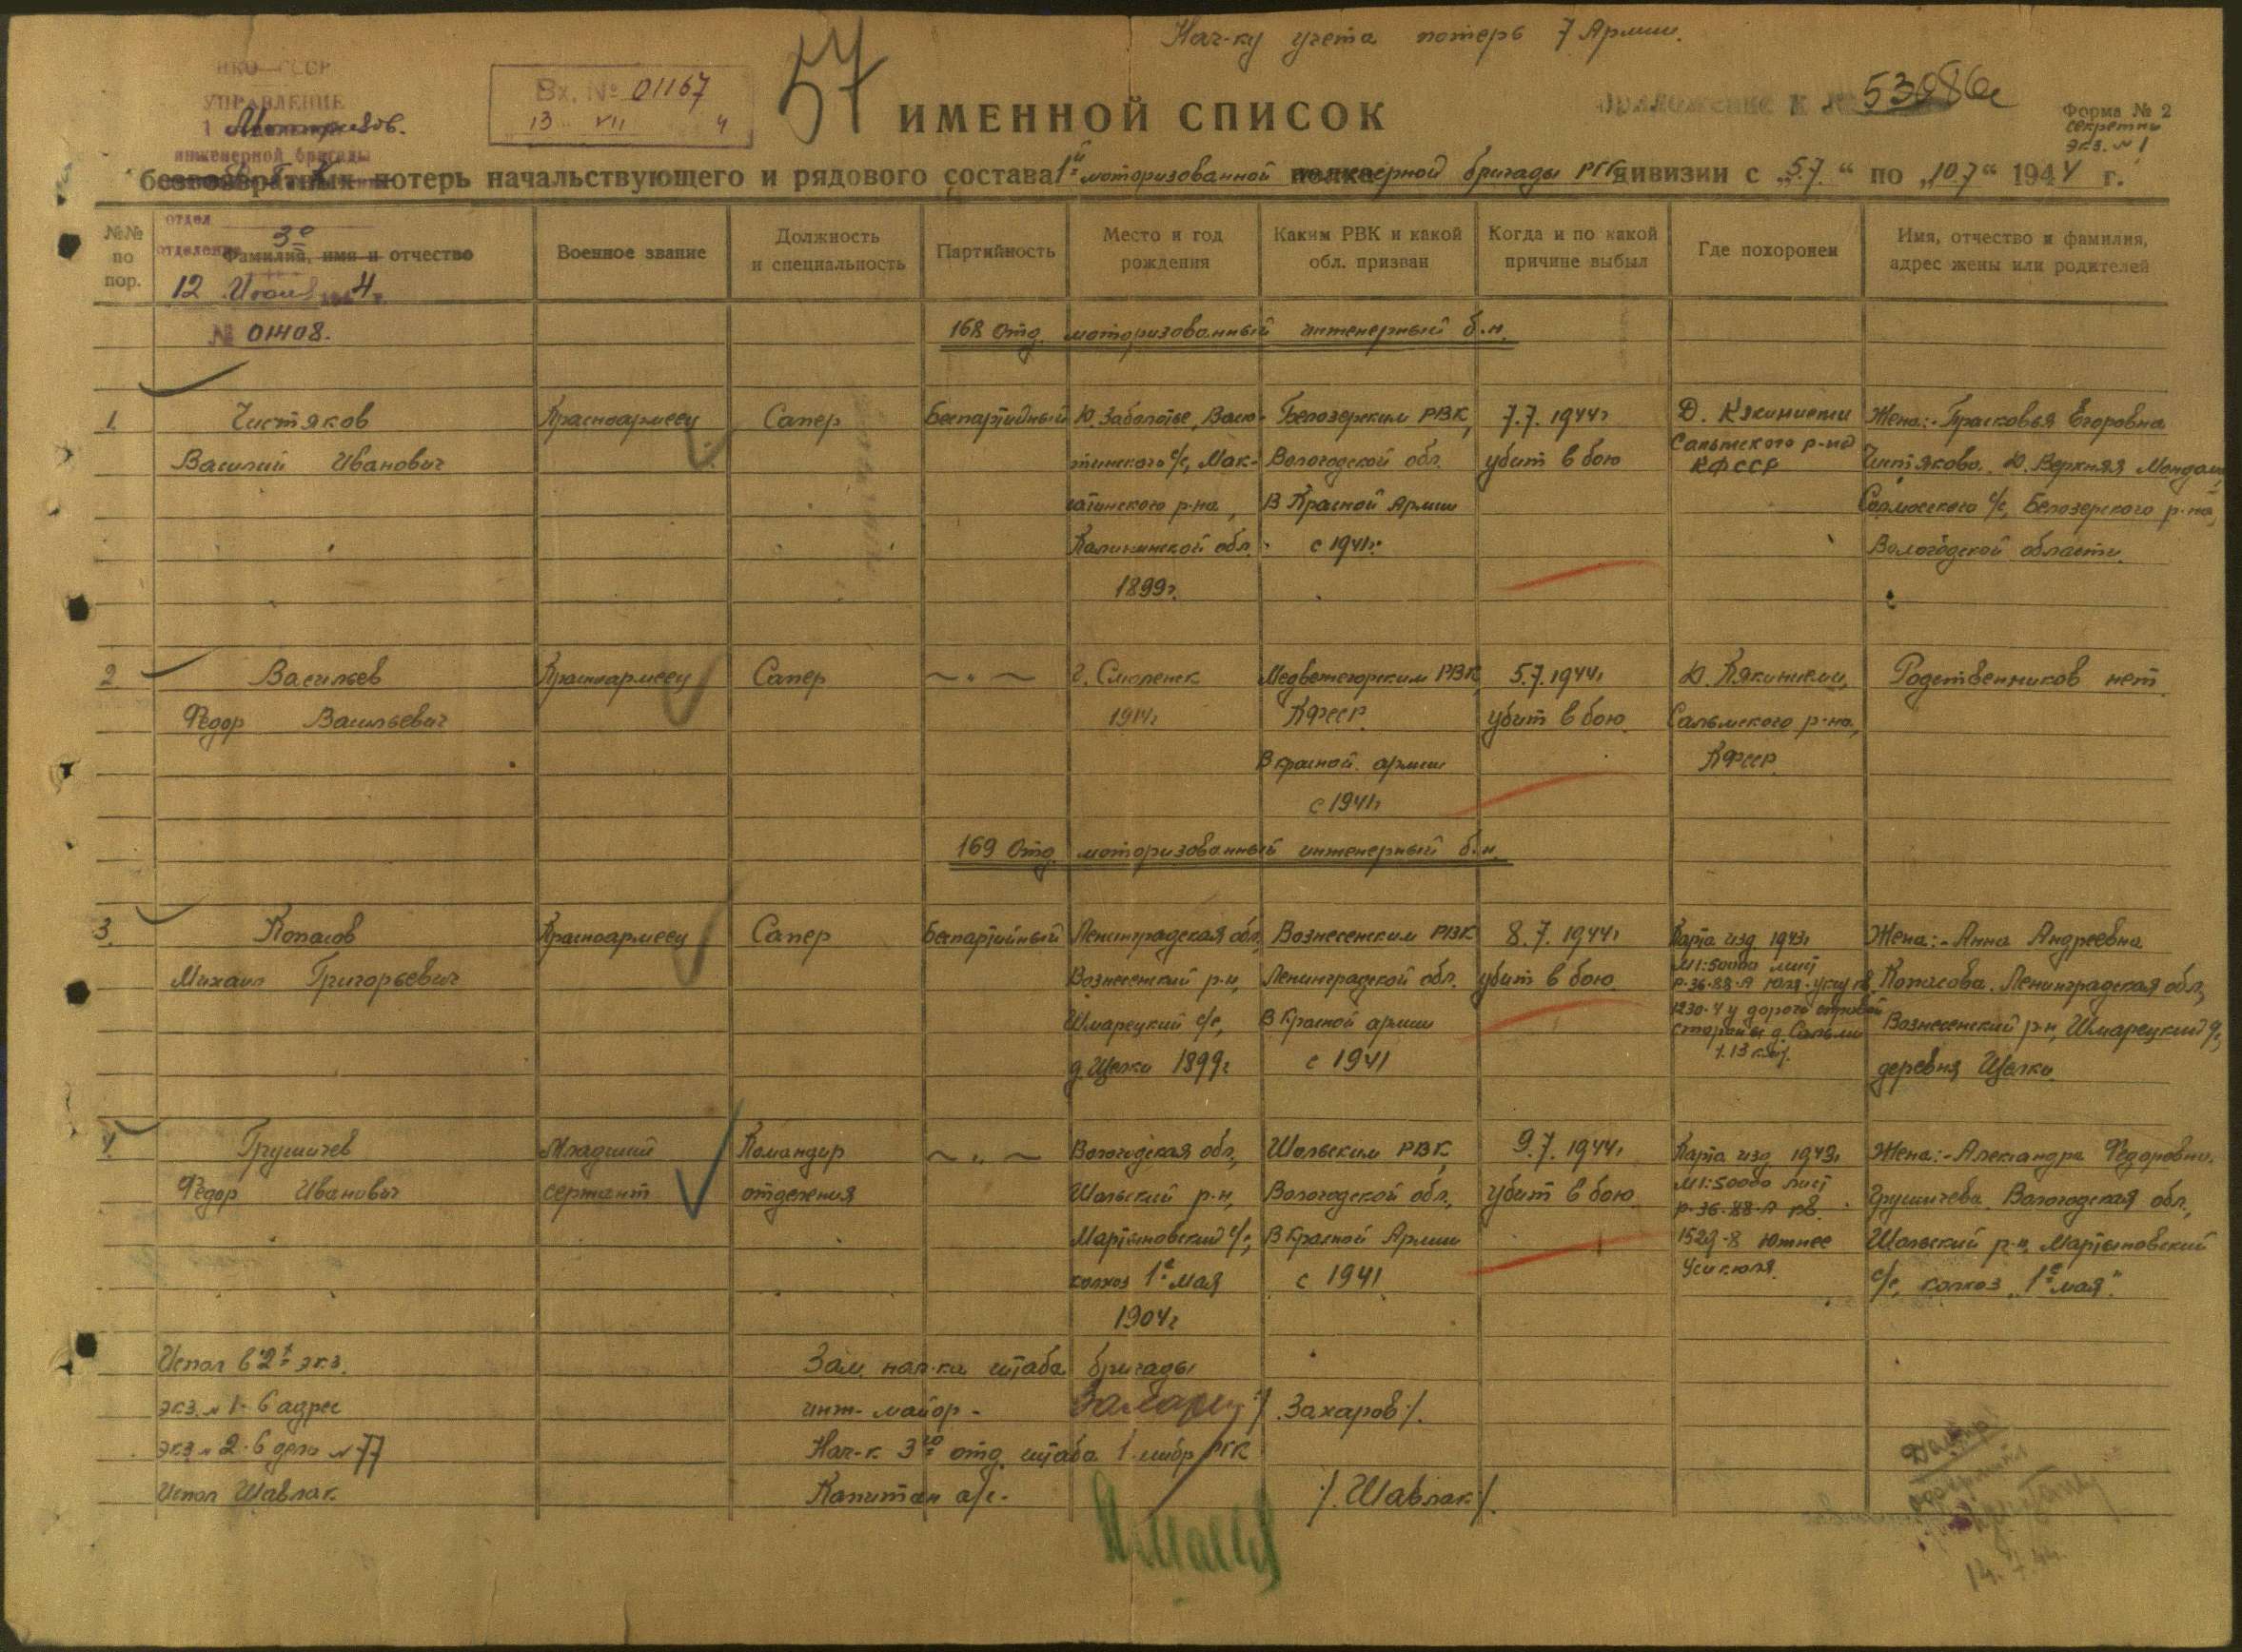 Нач-ку учета потерь 7 Армии.
НКО СССР
УПРАВЛЕНИЕ
1 Моторизов.
инженерной бригады
Вх. № 01167
13 VII 4
54
ИМЕННОЙ СПИСОК
Приложение к № 53086с
Форма № 2
секретно
экз. № 1
безвозвратных потерь начальствующего и рядового состава 1й моторизованной инженерной бригады РГК дивизии с „5.7.“ по „10.7“ 1944 г.
отдел
отделение 3е
12 Июля 4 г.
№ 01408.
№№ по пор.
Фамилия, имя и отчество
Военное звание
Должность и специальность
Партийность
Место и год рождения
Каким РВК и какой обл. призван
Когда и по какой причине выбыл
Где похоронен
Имя, отчество и фамилия, адрес жены или родителей
168 Отд. моторизованный инженерный б-н.
1. Чистяков Красноармеец Сапер Беспартийный Д. Заболотье, Васю- Белозерским РВК, 7.7.1944г Д. Кякиниеми Жена:- Прасковья Егоровна
Василий Иванович тинского с/с, Мак- Вологодской обл. убит в бою Сальмского р-на КФССР Чистякова. Д. Верхняя
сатинского р-на, В Красной Армии с/с, Белозерского р-на,
Калининской обл. с 1941г. Вологодской области.
1899г.
2 Васильев Красноармеец Сапер ~ " ~ г. Смоленск Медвежегорским РВК 5.7.1944г Д. Кякиниеми, Родственников нет.
Федор Васильевич 1914г КФССР. убит в бою Сальмского р-на,
В Красной армии КФССР.
с 1941г
169 Отд. моторизованный инженерный б-н.
3. Копасов Красноармеец Сапер Беспартийный Ленинградская обл, Вознесенским РВК 8.7.1944г Карта изд 1943г Жена:- Анна Андреевна
Михаил Григорьевич Вознесенский р-н, Ленинградской обл. убит в бою М 1:50000 лист Р-36-88-А кв. Копасова. Ленинградская обл,
Шмарецкий с/с, В Красной армии 1230-4 у дороги стороны д. Сальми Вознесенский р-н, Шмарецкий с/с,
д. Щелки 1899г с 1941 деревня Щелки.
4. Грушичев Младший Командир ~ " ~ Вологодская обл, Шольским РВК, 9.7.1944г Карта изд 1943г Жена:- Александра Федоровна.
Федор Иванович сержант отделения Шольский р-н, Вологодской обл., убит в бою М 1:50000 лист Р-36-88-А кв. Грушичева. Вологодская обл.,
Мартыновский с/с, В Красной Армии 1529-8 южнее Шольский р-н, Мартыновский
колхоз 1е мая с 1941 Усикюля. с/с, колхоз „1е мая“.
1904г
Испол в 2х экз. Зам. нач-ка штаба бригады
экз. № 1- в адрес инж- майор - /.Захаров/.
экз № 2- в дело № 77 Нач-к 3го отд. штаба 1 мибр РГК
Испол Шавлак. Капитан а/с- /.Шавлак/.
14.7.44.